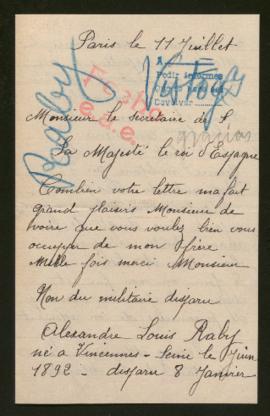 Paris le 11 Juillet
Raby
Pedir informes
Monsieur le Secretaire de S
gracias
Sa Majesté le roi d'Espagne
Combien votre lettre ma fait
grand plaisir Monsieur de
voire que vous voulez bien vous
occuper de mon frère
Mille fois merci Monsieur
Non du militaire disparu
Alexandre Louis Raby
né a Vincennes - Seine le Juin
1892 - disparu 8 Janvier